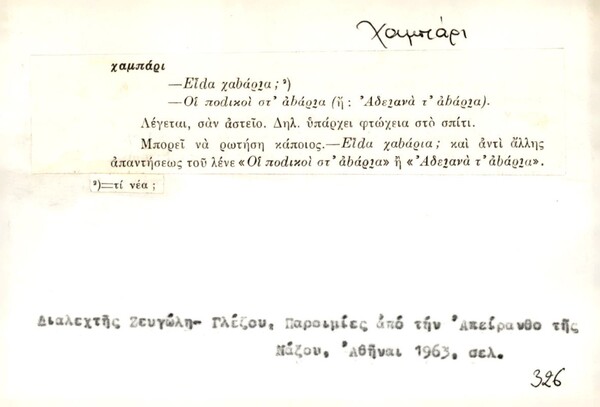 χαμπάρι
χαμπάρι
—Εἶda χαbάρι̯α ; ²)
—Οἱ ποdικοὶ στ’ ἀbάρι̯α (ἤ : Ἀδει̯ανὰ τ’ ἀbάρι̯α).
Λέγεται, σὰν ἀστεῖο. Δηλ. ὑπάρχει φτώχεια στὸ σπίτι.
Μπορεῖ νὰ ρωτήση κάποιος.—Εἶda χαbάρια ; καὶ ἀντὶ ἄλλης
ἀπαντήσεως τοῦ λένε «Οἱ ποdικοὶ στ’ ἀbάρι̯α» ἢ «Ἀδει̯ανὰ τ’ ἀbάρι̯α».
²)=τί νέα ;
Διαλεχτῆς Ζευγώλη- Γλέζου, Παροιμίες ἀπό τήν Ἀπείρανθο τῆς
Νάξου, Ἀθῆναι 1963, σελ.
326